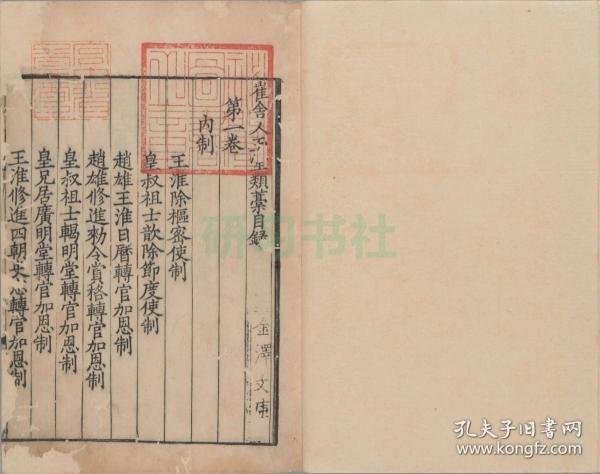 崔舍人玉堂類藁目錄
第一卷
內制
王淮除樞密使制
皇叔祖士歆除節度使制
趙雄王淮日曆轉官加恩制
趙雄修進勑令賞格轉官加恩制
皇叔祖士輵明堂轉官加恩制
皇兄居廣明堂轉官加恩制
王淮修進四朝史志轉官加恩制
金澤文庫
研习书社
孔夫子旧书网
www.kongfz.com